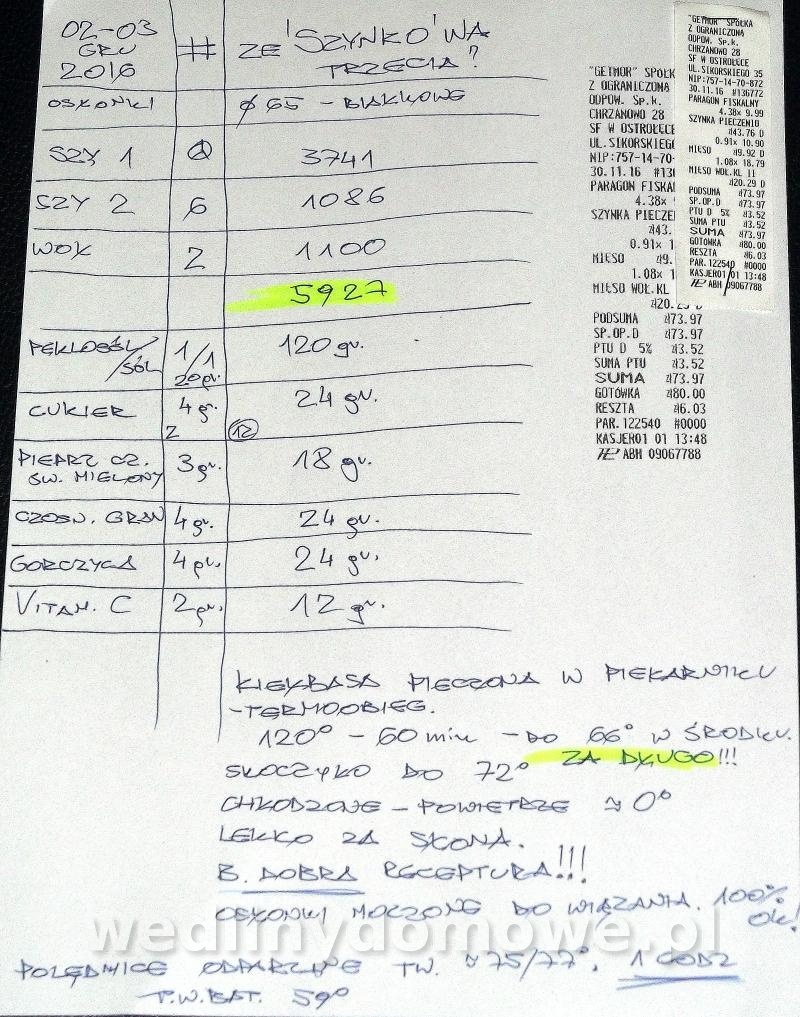 02-03 GRU 2016 # ZE 'SZYNKO'WA TRZECIA?
OSŁONKI ø 65 - BIAŁKOWE
SZY 1 3741
SZY 2 6 1086
WOŁ 2 1100
5927
PEKLOSÓL/SÓL 1/1 20gr. 120 gr.
CUKIER 4 gr. 24 gr.
2 12
PIEPRZ CZ. ŚW. MIELONY 3 gr. 18 gr.
CZOSN. GRAN 4 gr. 24 gr.
GORCZYCA 4 gr. 24 gr.
VITAM. C 2 gr. 12 gr.
KIEŁBASA PIECZONA W PIEKARNIKU
-TERMOOBIEG.
120° - 60 min - DO 66° W ŚRODKU.
ZA DŁUGO!!!
SKOCZYŁO DO 72°
CHŁODZONE - POWIETRZE ≈ 0°
LEKKO ZA SŁONA.
B. DOBRA RECEPTURA!!!
OSŁONKI MOCZONE DO WIĄZANIA. 100% OK!
POLĘDWICE ODPARZANE TW. ≈ 75/77°. 1 GODZ
T.W.BAT. 59°
"GETMOR" SPÓŁK
Z OGRANICZONĄ
ODPOW. Sp.k.
CHRZANOWO 28
SF W OSTROŁĘCE
UL.SIKORSKIEG
NIP:757-14-70-
30.11.16 #13
PARAGON FISKA
4.38x
SZYNKA PIECZE
zł43.
0.91x 1
MIĘSO zł9.
1.08x 1
MIĘSO WOŁ.KL
zł20.29 D
PODSUMA zł73.97
SP.OP.D zł73.97
PTU D 5% zł3.52
SUMA PTU zł3.52
SUMA zł73.97
GOTÓWKA zł80.00
RESZTA zł6.03
PAR.122540 #0000
KASJER01 01 13:48
ABH 09067788
"GETMOR" SPÓŁKA
Z OGRANICZONĄ
ODPOW. Sp.k.
CHRZANOWO 28
SF W OSTROŁĘCE
UL.SIKORSKIEGO 35
NIP:757-14-70-872
30.11.16 #136772
PARAGON FISKALNY
4.38x 9.99
SZYNKA PIECZENIO
zł43.76 D
0.91x 10.90
MIĘSO zł9.92 D
1.08x 18.79
MIĘSO WOŁ.KL II
zł20.29 D
PODSUMA zł73.97
SP.OP.D zł73.97
PTU D 5% zł3.52
SUMA PTU zł3.52
SUMA zł73.97
GOTÓWKA zł80.00
RESZTA zł6.03
PAR.122540 #0000
KASJER01 01 13:48
ABH 09067788
wedlinydomowe.pl